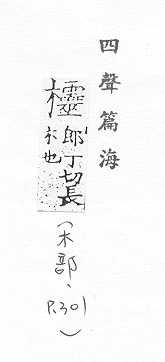 四聲篇海
郎丁切長
木也
(木部、P.301)